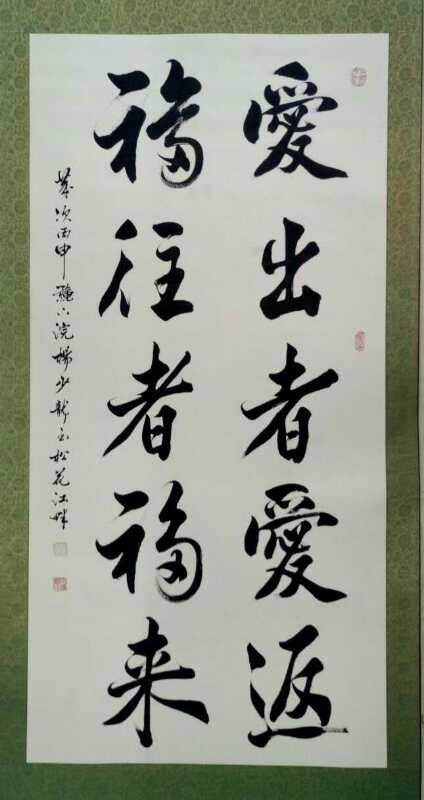 愛出者愛返
福往者福来
歲次丙申 楊少龍 松花江畔